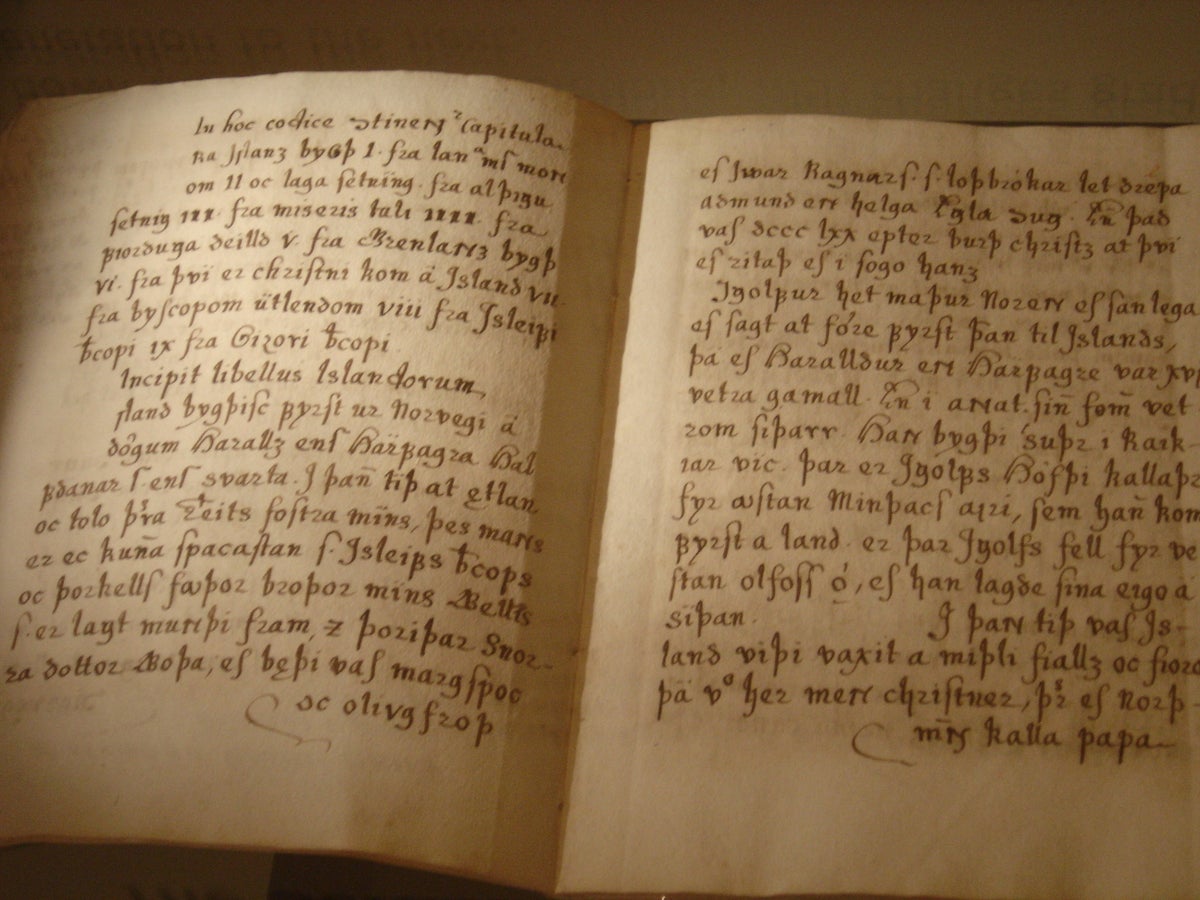 In hoc codice Itinerꝝ Capitula-
ra Islanz bygþ I. fra lanᵃmſ mon
om II oc laga setning. fra alþıgıſ
setnig III. fra miseris tali IIII. fra
ꝼiorðunga deilld V. fra Grenlanz bygþ
VI. fra þvi er chriſtni kom ä Island VII.
fra byſcopom ütlendom VIII fra Iſleiꝼi
b̵copi IX fra Gizori b̵copi
Incipit libellus Iſlandorum
ſland bygþiſc ꝼyrſt ur Norvegi ä
dǫgum Harallz enſ Härꝼagra Hal
ꝼdanar ſ. enſ svarta. I þan̄ tiþ at ętlan
oc tolo þr̄ra Teits foſtra mïns, þes manſ
er ec kun̄a ſpacaſtan ſ. Iſleiꝼs b̵cops
oc þorkellſ fꜹþor broþor mins Gellis
ſ. er langt munþi fram, ⁊ þoriþar Snor-
ra dottor Goþa, eſ bęþi vaſ margſpoc
oc oliugfroþ
eſ Iwar Ragnarſ. ſ. loþbrókar let drepa
admund en helga Engla dug. En̄ þad
vaſ dccc lxx epter burþ chriſtz at þvi
eſ ritaþ eſ i ſogo hanz
Ingolꝼur het maþur Noren eſ ſanlega
eſ ſagt at fóre ꝼyrſt þan til Iſlands,
þá eſ Haralldur en Härꝼagre var XVI
vetra gamall. En̄ i annat. ſin̄ fom̄ vet
rom ſiþarr. Han bygþi ſuþr i Raik-
iar vic. þar er Ingolꝼs Höfþi kallaþr
fyr aꜹſtan Minþacſ ayri, ſem han̄ kom
ꝼyrſt a land. er þar Ingolfs fell fyr ve
ſtan olfoſſ ǫ́, eſ han lagde ſina eigo á
ſiþan. I þan tiþ vaſ Iſ-
land viþi vaxit a miþli fiallz oc fioro
þä vº her menn chriſtner, þr̄ eſ Norþ-
mn̄ kalla papa